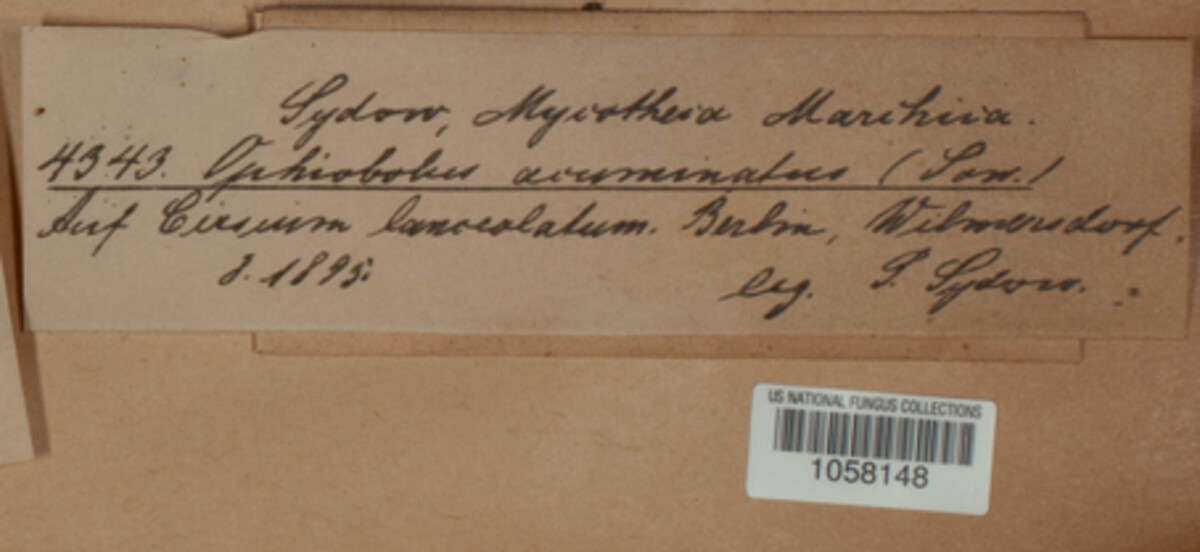 Sydow, Mycotheca Marchica.
4343. Ophiobolus acuminatus (Sow.)
Auf Cirsium lanceolatum. Berlin, Wilmersdorf.
1895.
leg. P. Sydow.
US NATIONAL FUNGUS COLLECTIONS
1058148